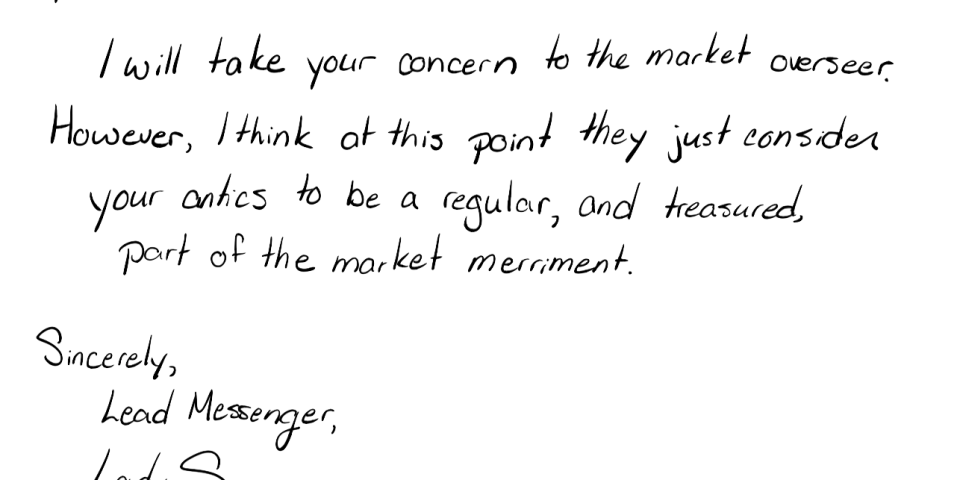 I will take your concern to the market overseer.
However, I think at this point they just consider
your antics to be a regular, and treasured,
part of the market merriment.
Sincerely,
Lead Messenger,